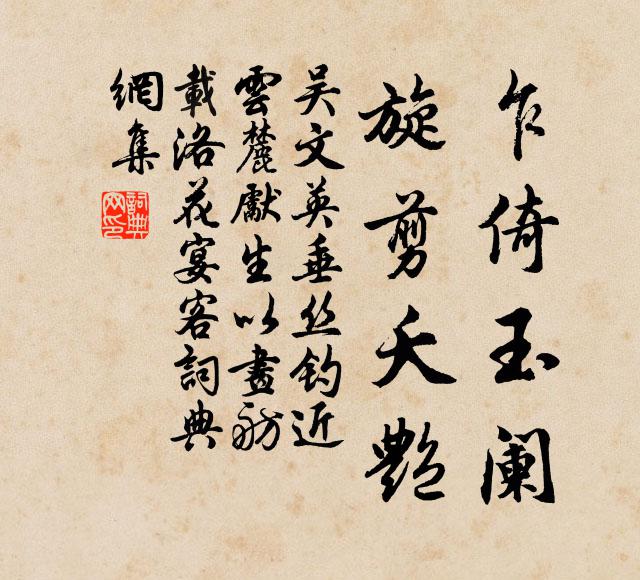 乍倚玉阑
旋剪夭艳
吴文英垂丝钓近
雲麓獻生以畫舫
載洛花宴客詞典
網集
詞典
网印